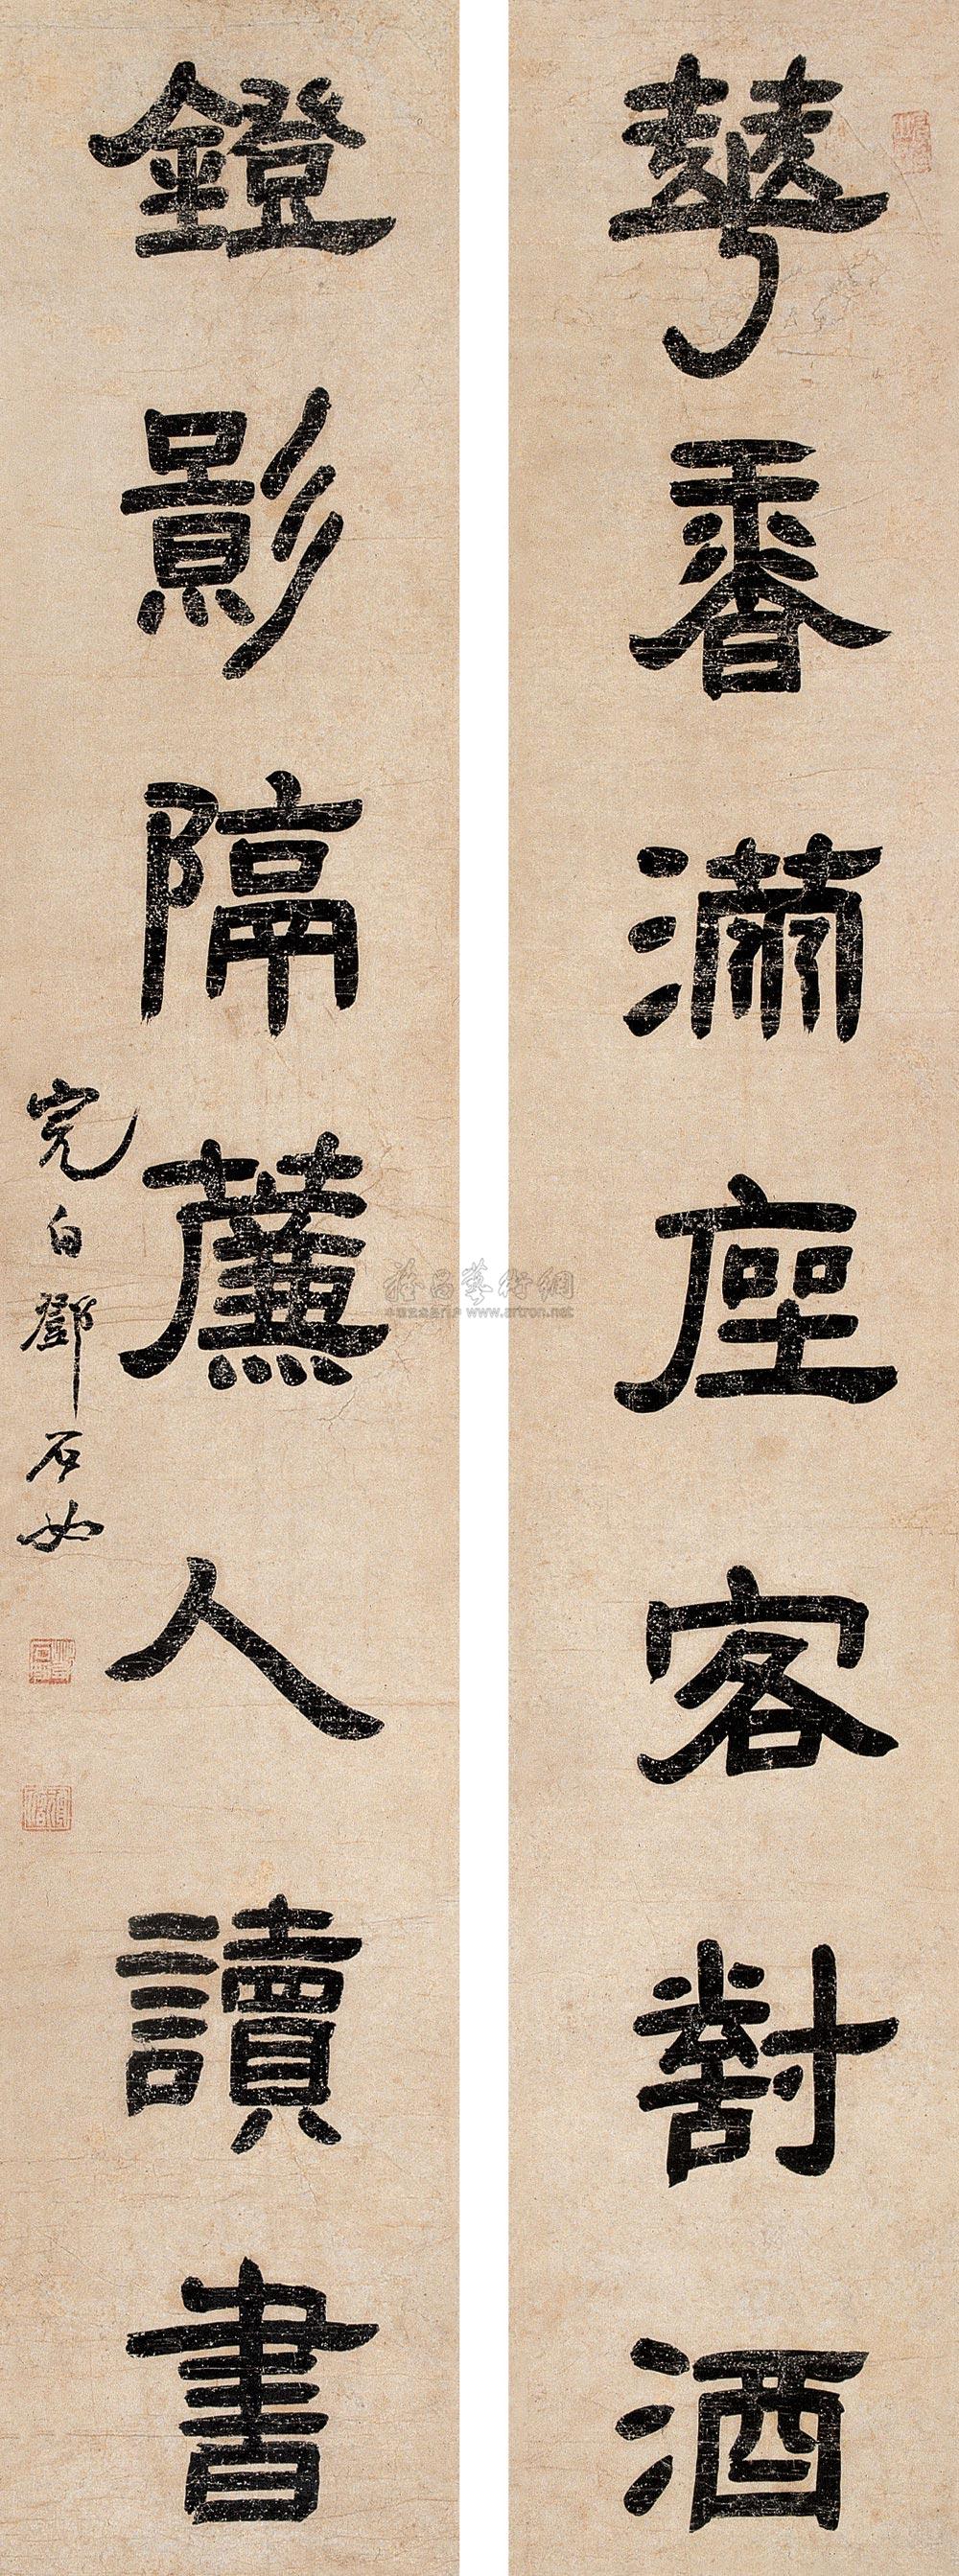 華香滿座客對酒
鐙影隔簾人讀書
完白鄧石如
www.artron.net